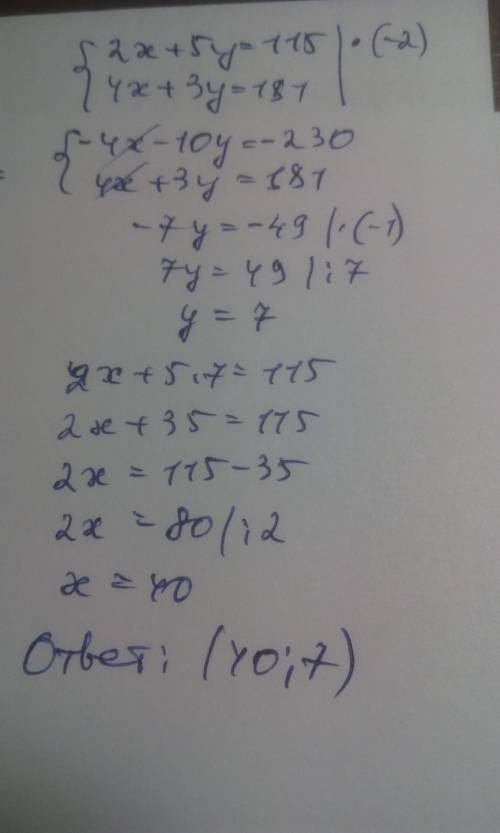 {2x+5y=115 | ·(-2)
{4x+3y=181
{-4x-10y=-230
{4x+3y=181
-7y=-49 |·(-1)
7y=49 |:7
y=7
2x+5·7=115
2x+35=115
2x=115-35
2x=80 |:2
x=40
Ответ: (40;7)